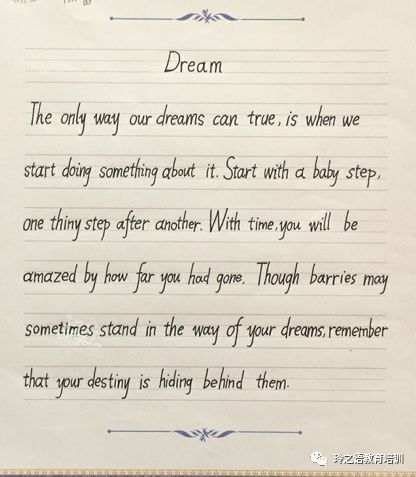 Dream
The only way our dreams can true, is when we
start doing something about it. Start with a baby step,
one thiny step after another. With time, you will be
amazed by how far you had gone. Though barries may
sometimes stand in the way of your dreams, remember
that your destiny is hiding behind them.
玲之语教育培训